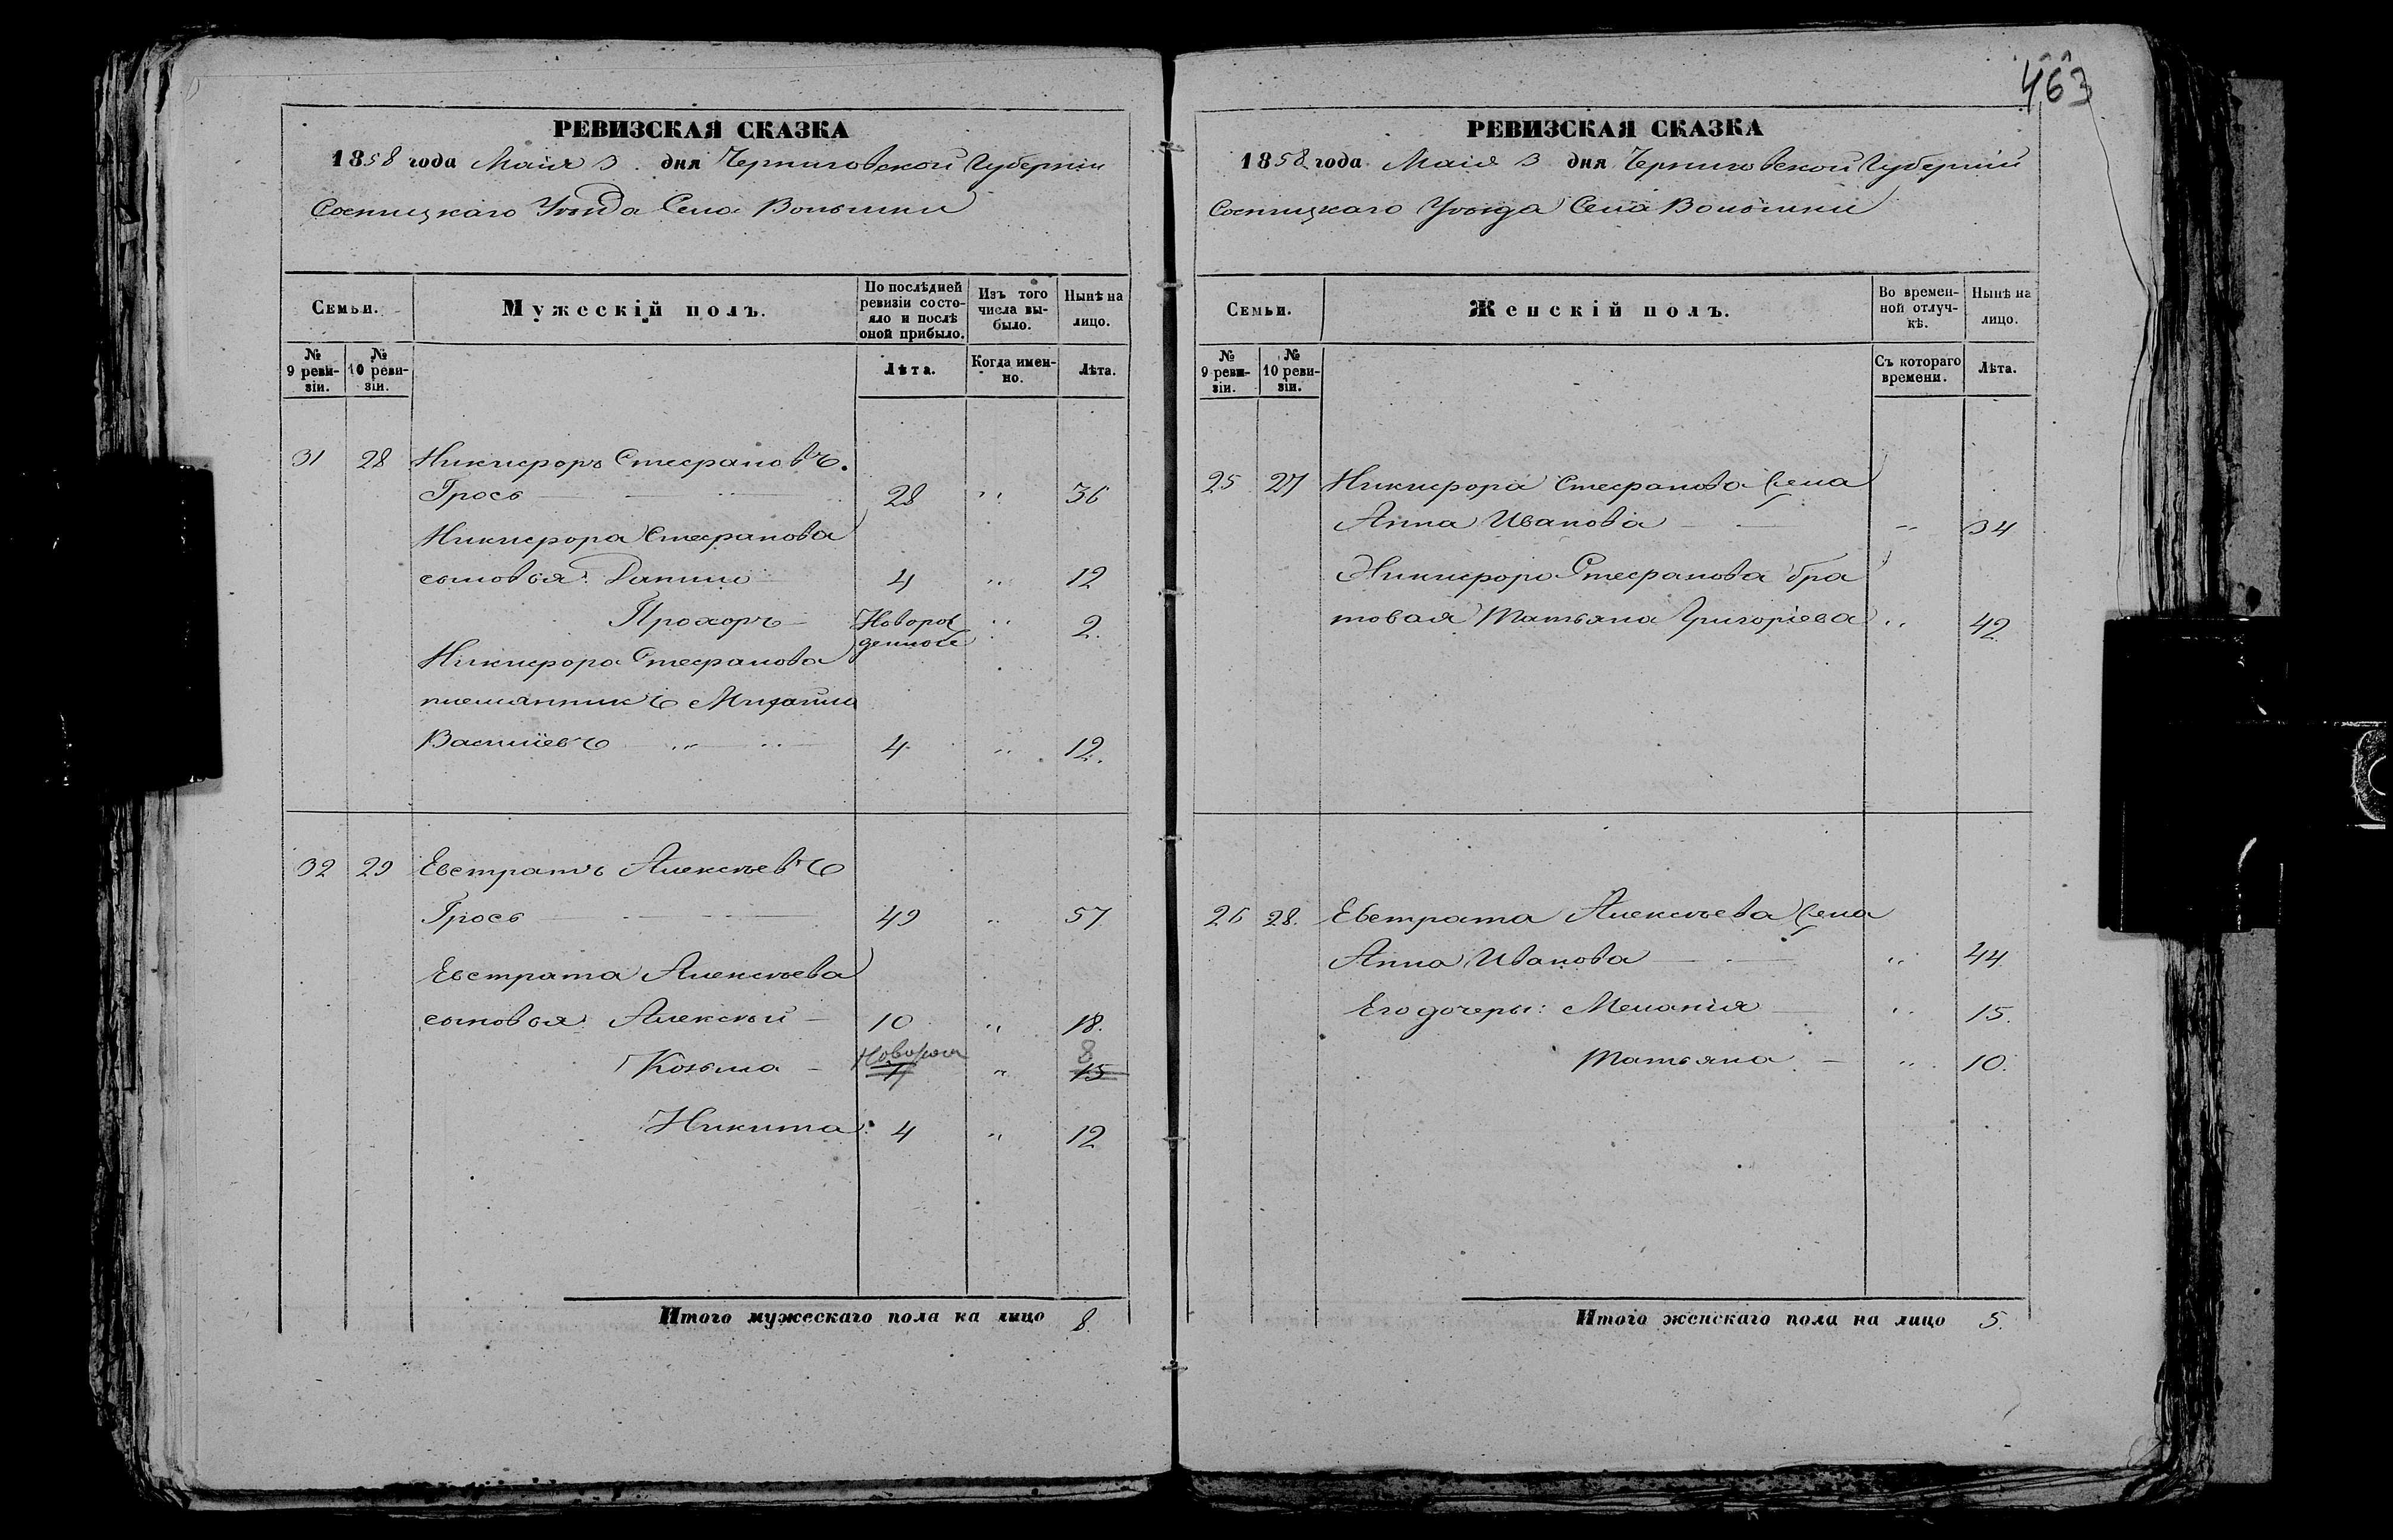 463
РЕВИЗСКАЯ СКАЗКА
1858 года Маія 3 дня Черниговской Губерніи
Сосницкаго Уѣзда Села Волынки
Семьи.
Мужескій полъ.
По послѣдней ревизіи состояло и послѣ оной прибыло.
Изъ того числа выбыло.
Нынѣ на лицо.
№ 9 ревизіи.
№ 10 ревизіи.
Лѣта.
Когда именно.
Лѣта.
31 28 Никифоръ Стефановъ
Грось 28 „ 36
Никифора Стефанова
сыновья: Данило 4 „ 12
Прохоръ Новорожденное „ 2.
Никифора Стефанова
племянникъ Михайла
Васильевъ „ „ 4 „ 12.
32 29 Евстратъ Алексѣевъ
Грось 49 „ 57
Евстрата Алексѣева
сыновья: Алексѣй 10 „ 18.
Козьма 7 „ 15 8
Никита 4 „ 12
Итого мужескаго пола на лицо 8.
РЕВИЗСКАЯ СКАЗКА
1858 года Маія 3 дня Черниговской Губерніи
Сосницкаго Уѣзда Села Волынки
Семьи.
Женскій полъ.
Во временной отлучкѣ.
Нынѣ на лицо.
№ 9 ревизіи.
№ 10 ревизіи.
Съ котораго времени.
Лѣта.
25 27 Никифора Стефанова жена
Анна Иванова „ 34
Никифора Стефанова бра
товая Татьяна Григоріева „ 42
26 28. Евстрата Алексѣева жена
Анна Иванова „ 44
Его дочери: Меланія „ 15.
Татьяна „ 10.
Итого женскаго пола на лицо 5.